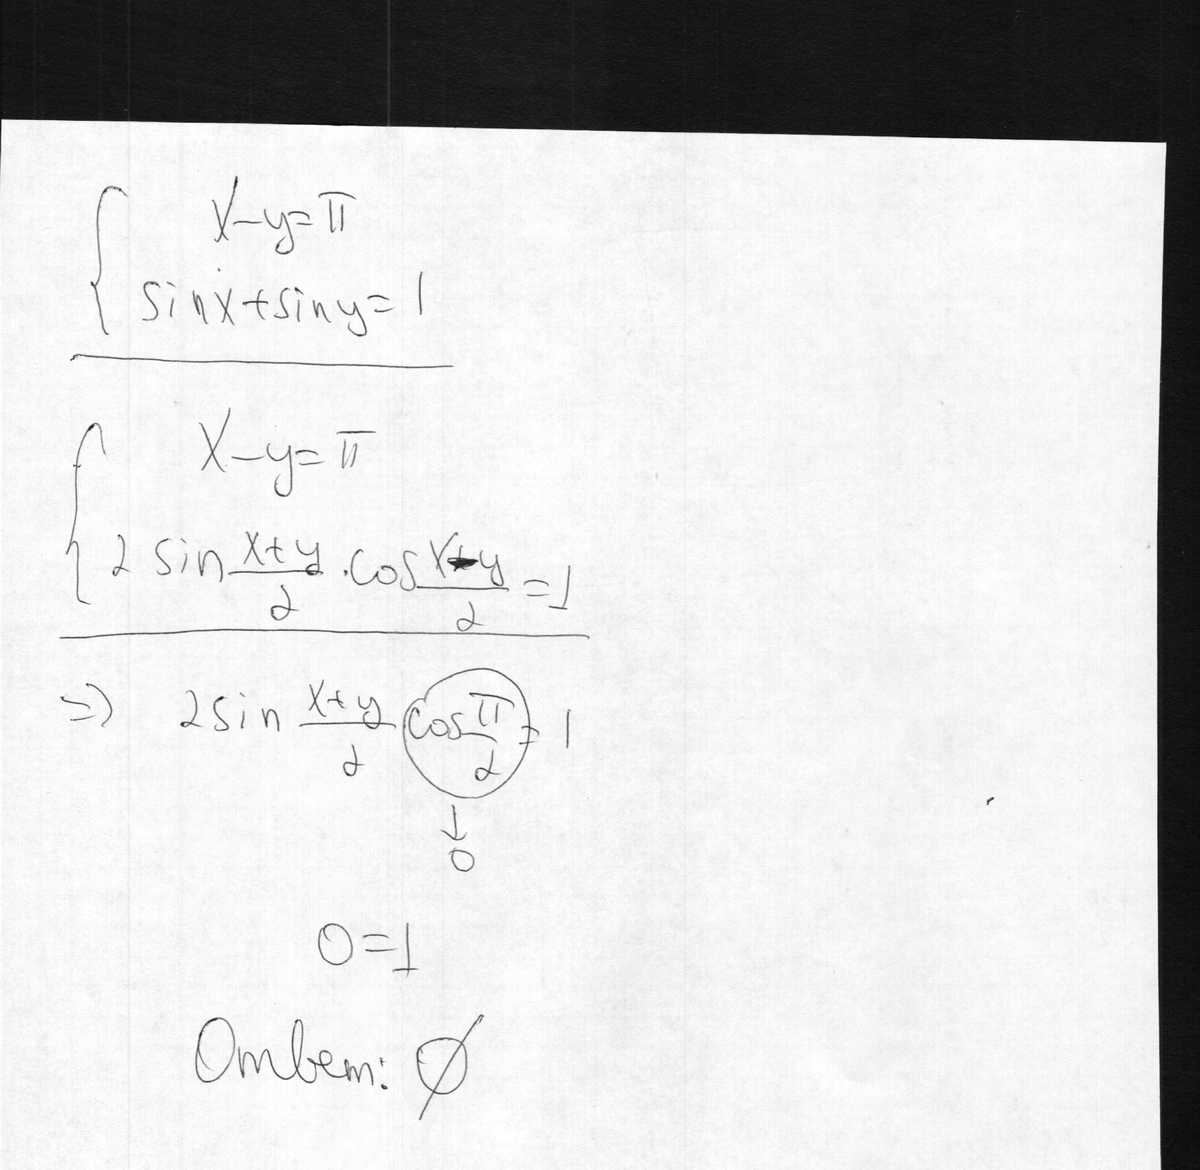 x-y=π
sinx+siny=1
x-y=π
2 sin (x+y)/2 · cos (x-y)/2 = 1
=> 2sin (x+y)/2 cos π/2 = 1
↓
0
0=1
Ответ: ∅